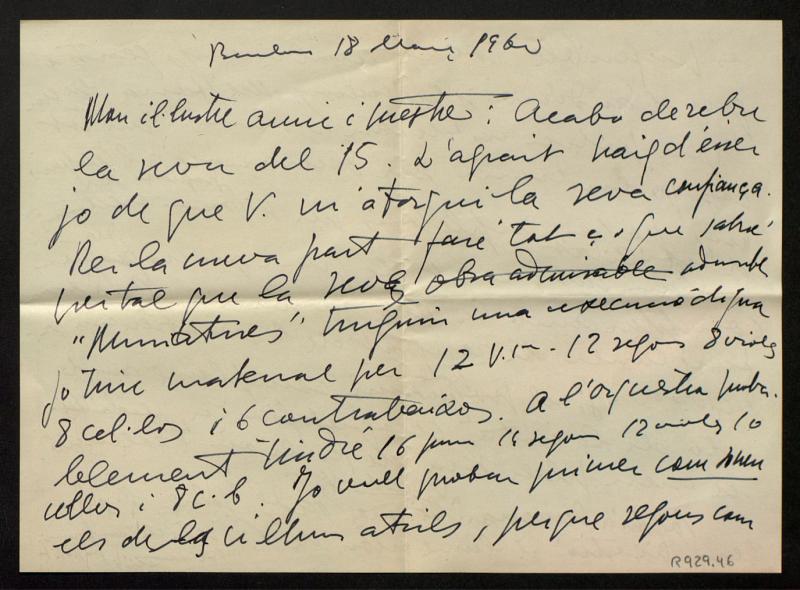 18 Març 1960
Mon il·lustre amic i mestre: Acabo de rebre
la seva del 15. L'agrait haig d'ésser
jo de que V. m'atorgui la seva confiança.
Per la meva part faré tot ço que sabré
per tal que la seva obra admirable admirable
"Miniatures" tinguin una execució digna
Jo tinc material per 12 V.1n - 12 segons 8 violes
8 cel·los i 6 contrabaixos. A l'orquestra proba-
blement tindré 16 prim 14 segons 12 violes 10
cellos i 8 c.b. Jo vull probar primer com sonen
els de als últims atrils, perque segons com
R929.46